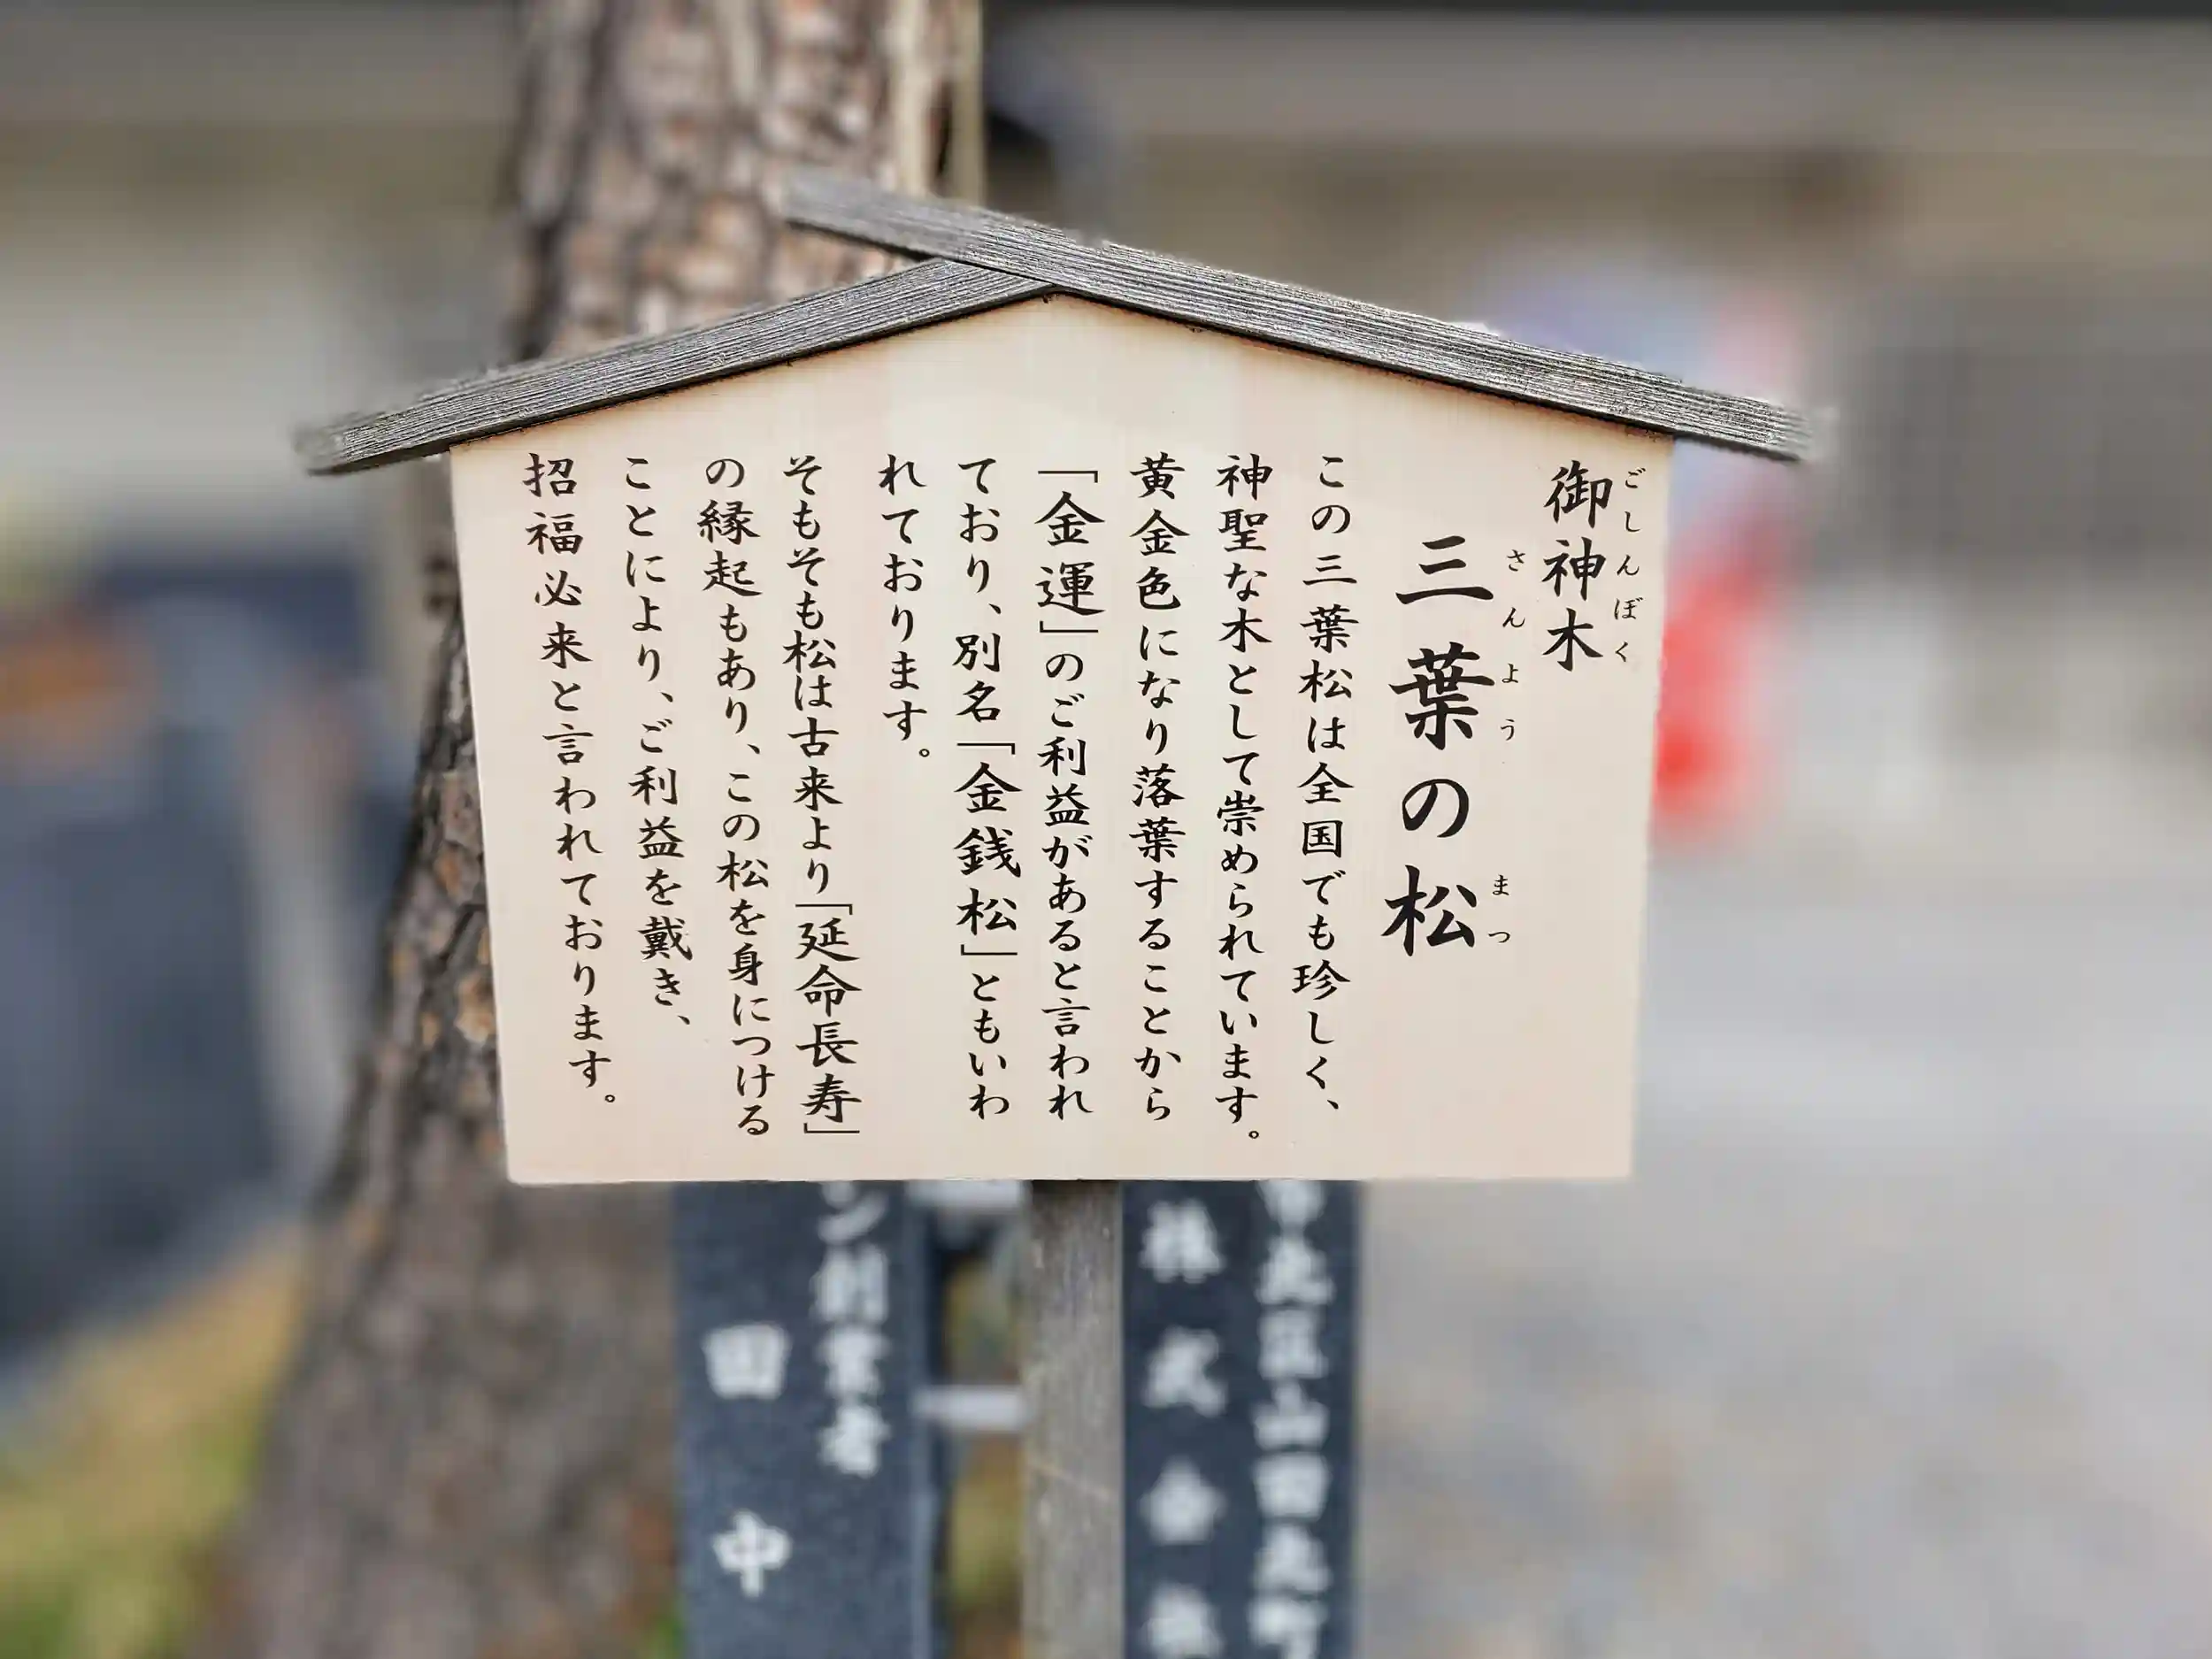 御神木
ごしんぼく
三葉の松
さんようまつ
この三葉松は全国でも珍しく、
神聖な木として崇められています。
黄金色になり落葉することから
「金運」のご利益があると言われ
ており、別名「金銭松」ともいわ
れております。
そもそも松は古来より「延命長寿」
の縁起もあり、この松を身につける
ことにより、ご利益を戴き、
招福必来と言われております。
山田
株式会社
ン創業者
田中